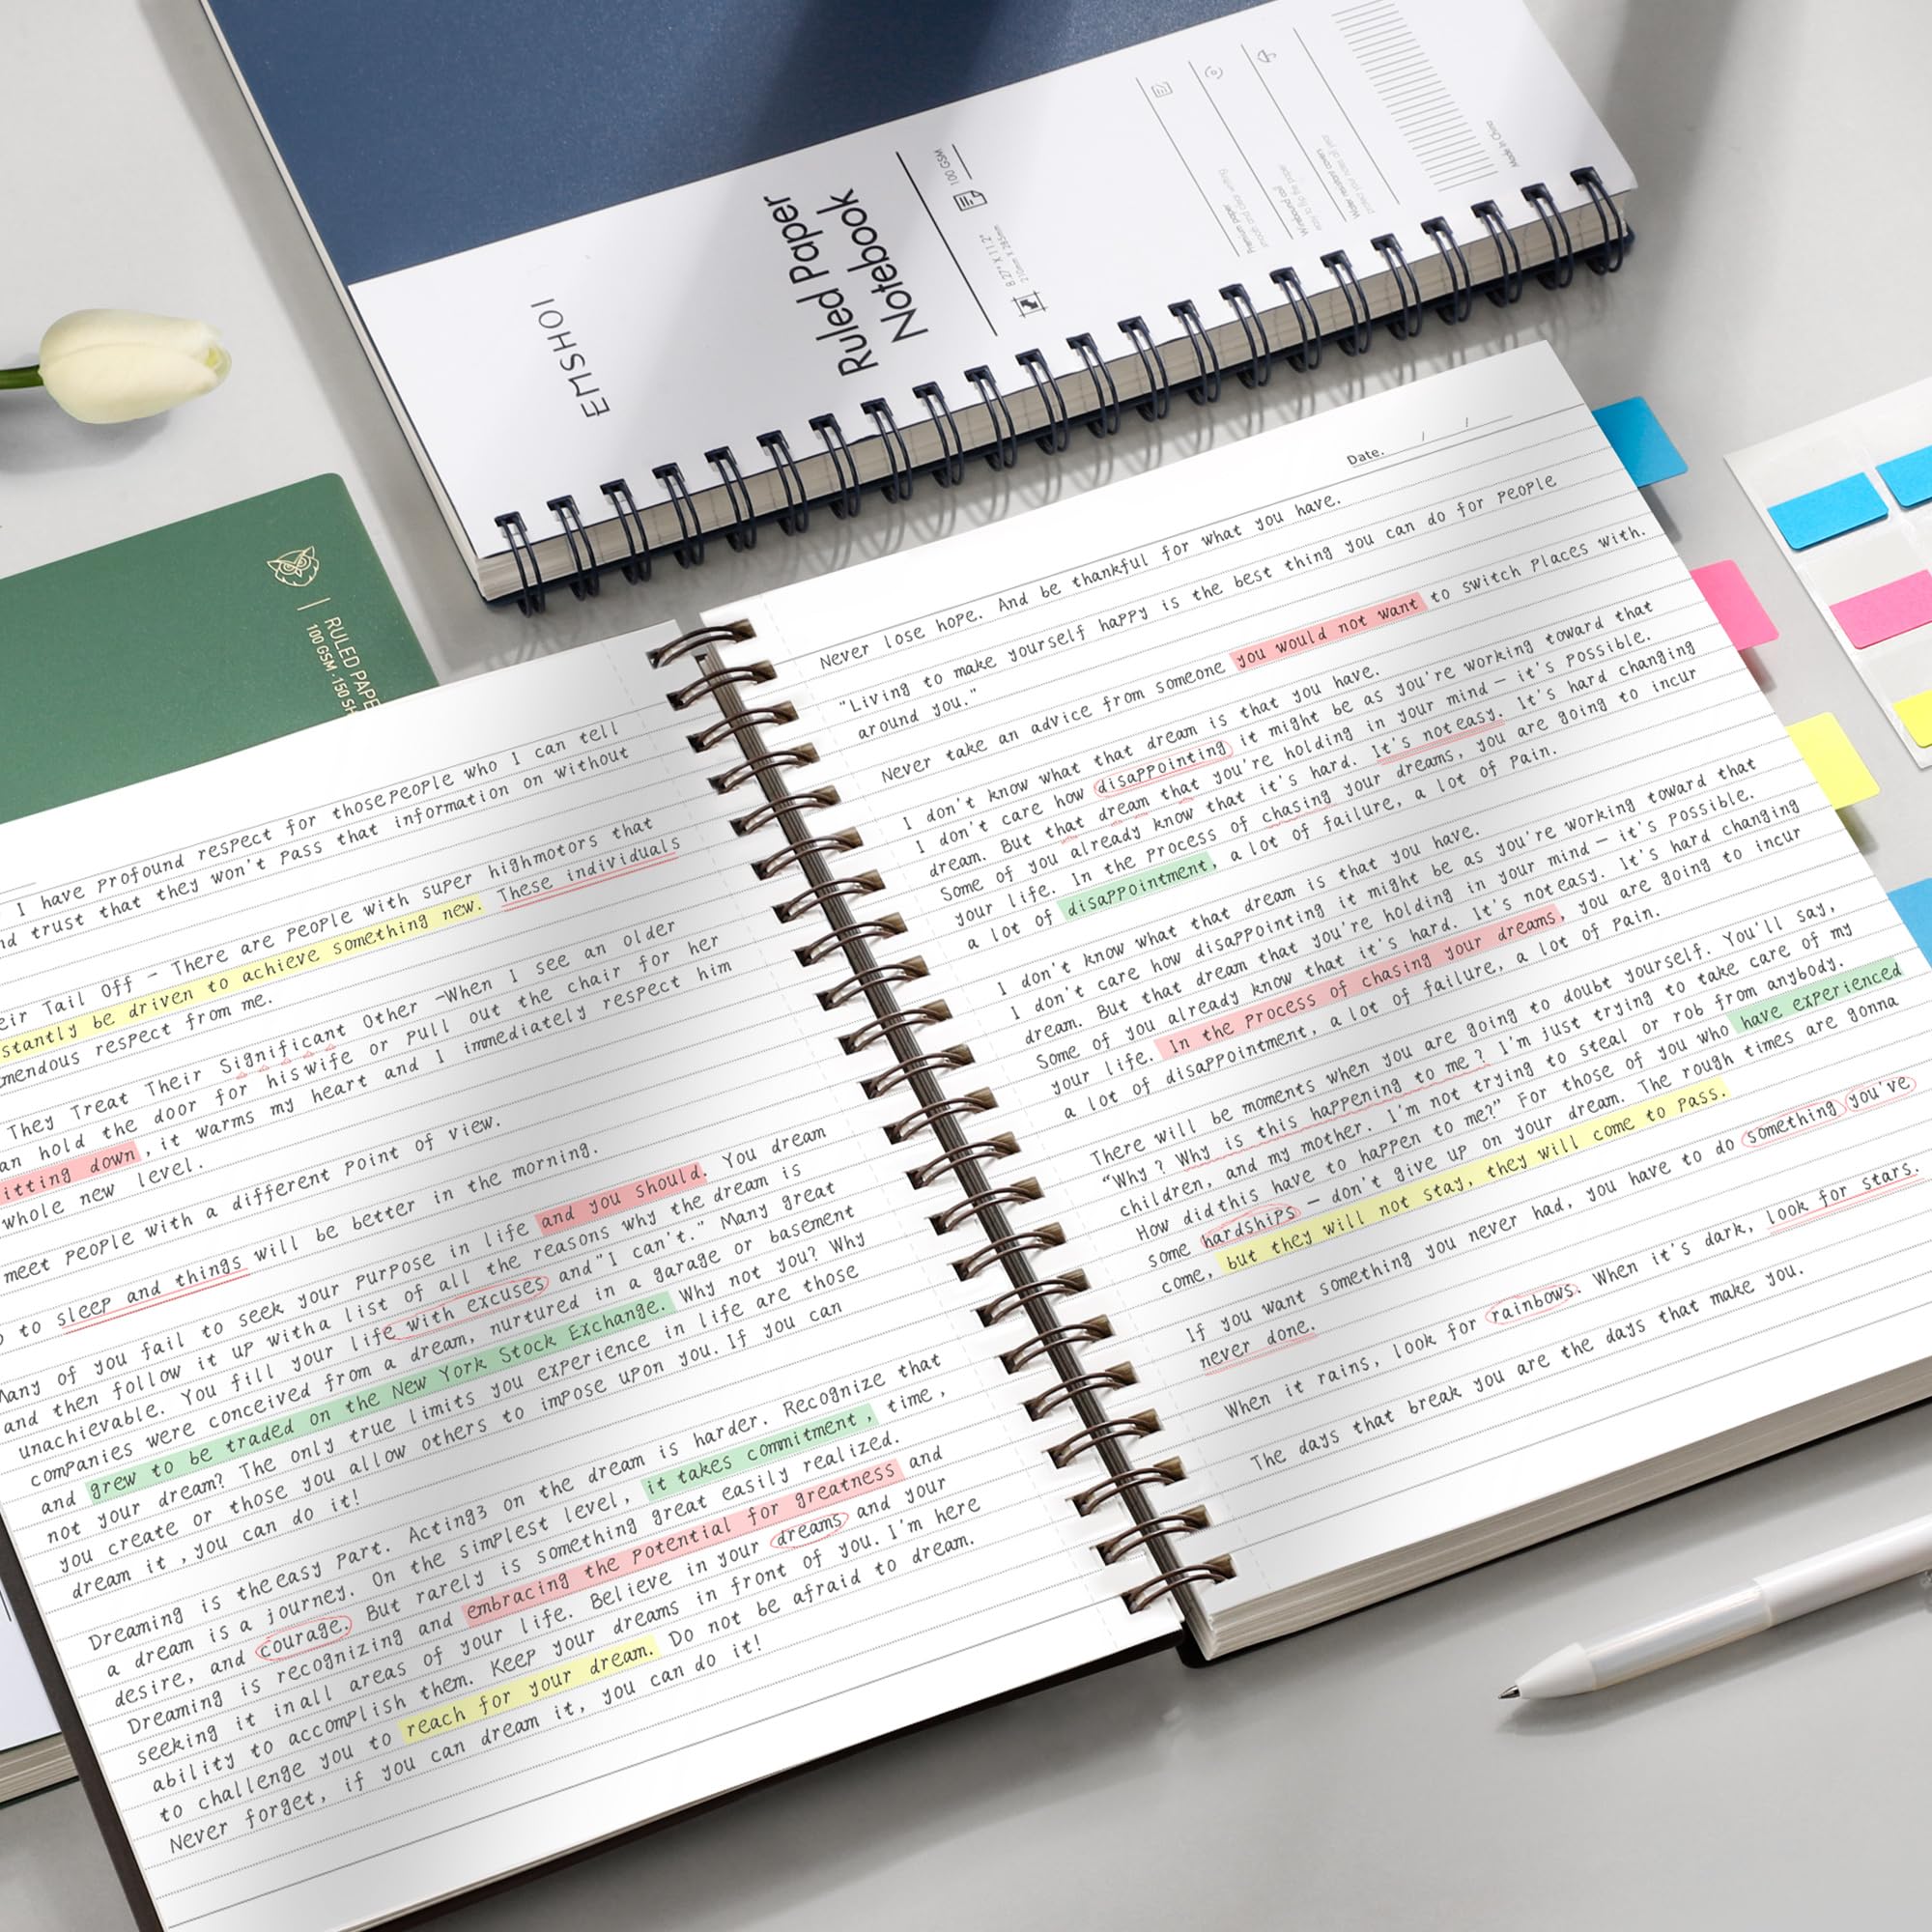 EMSHOI
Ruled Paper
Notebook
8.27" X 11.2"
210mm X 285mm
100 GSM
Premium paper
Water resistant covers
Made in China
RULED PAPE
100 GSM · 150 SH
I have profound respect for thosepeople who I can tell
nd trust that they won't pass that information on without
eir Tail Off – There are people with super highmotors that
stantly be driven to achieve something new. These individuals
mendous respect from me.
They Treat Their Significant Other –When I see an older
an hold the door for hiswife or pull out the chair for her
itting down, it warms my heart and I immediately respect him
whole new level.
meet people with a different point of view.
to sleep and things will be better in the morning.
Many of you fail to seek your purpose in life and you should. You dream
and then follow it up witha list of all the reasons why the dream is
unachievable. You fill your life with excuses and "I can't." Many great
companies were conceived from a dream, nurtured in a garage or basement
and grew to be traded on the New York Stock Exchange. Why not you? Why
not your dream? The only true limits you experience in life are those
you create or those you allow others to impose upon you. If you can
dream it ,you can do it!
Dreaming is theeasy part. Acting3 on the dream is harder. Recognize that
a dream is a journey. On the simplest level, it takes commitment, time,
desire, and courage. But rarely is something great easily realized.
Dreaming is recognizing and embracing the potential for greatness and
seeking it inall areas of your life. Believe in your dreams and your
ability to accomplish them. Keep your dreams in front of you. I'm here
to challenge you to reach for your dream. Do not be afraid to dream.
Never forget, if you can dream it, you can do it!
Date. / /
Never lose hope. And be thankful for what you have.
"Living to make yourself happy is the best thing you can do for people
around you."
Never take an advice from someone you would not want to switch places with.
I don't know what that dream is that you have.
I don't care how disappointing it might be as you're working toward that
dream. But that dream that you're holding in your mind — it's possible.
Some of you already know that it's hard. It's noteasy. It's hard changing
your life. In the process of chasing your dreams, you are going to incur
a lot of disappointment, a lot of failure, a lot of pain.
I don't know what that dream is that you have.
I don't care how disappointing it might be as you're working toward that
dream. But that dream that you're holding in your mind — it's possible.
Some of you already know that it's hard. It's noteasy. It's hard changing
your life. In the process of chasing your dreams, you are going to incur
a lot of disappointment, a lot of failure, a lot of pain.
There will be moments when you are going to doubt yourself. You'll say,
"Why ? Why is this happening to me ? I'm just trying to take care of my
children, and my mother. I'm not trying to steal or rob from anybody.
How didthis have to happen to me?" For those of you who have experienced
some hardships — don't give up on your dream. The rough times are gonna
come, but they will not stay, they will come to pass.
If you want something you never had, you have to do something you've
never done.
When it rains, look for rainbows. When it's dark, look for stars.
The days that break you are the days that make you.